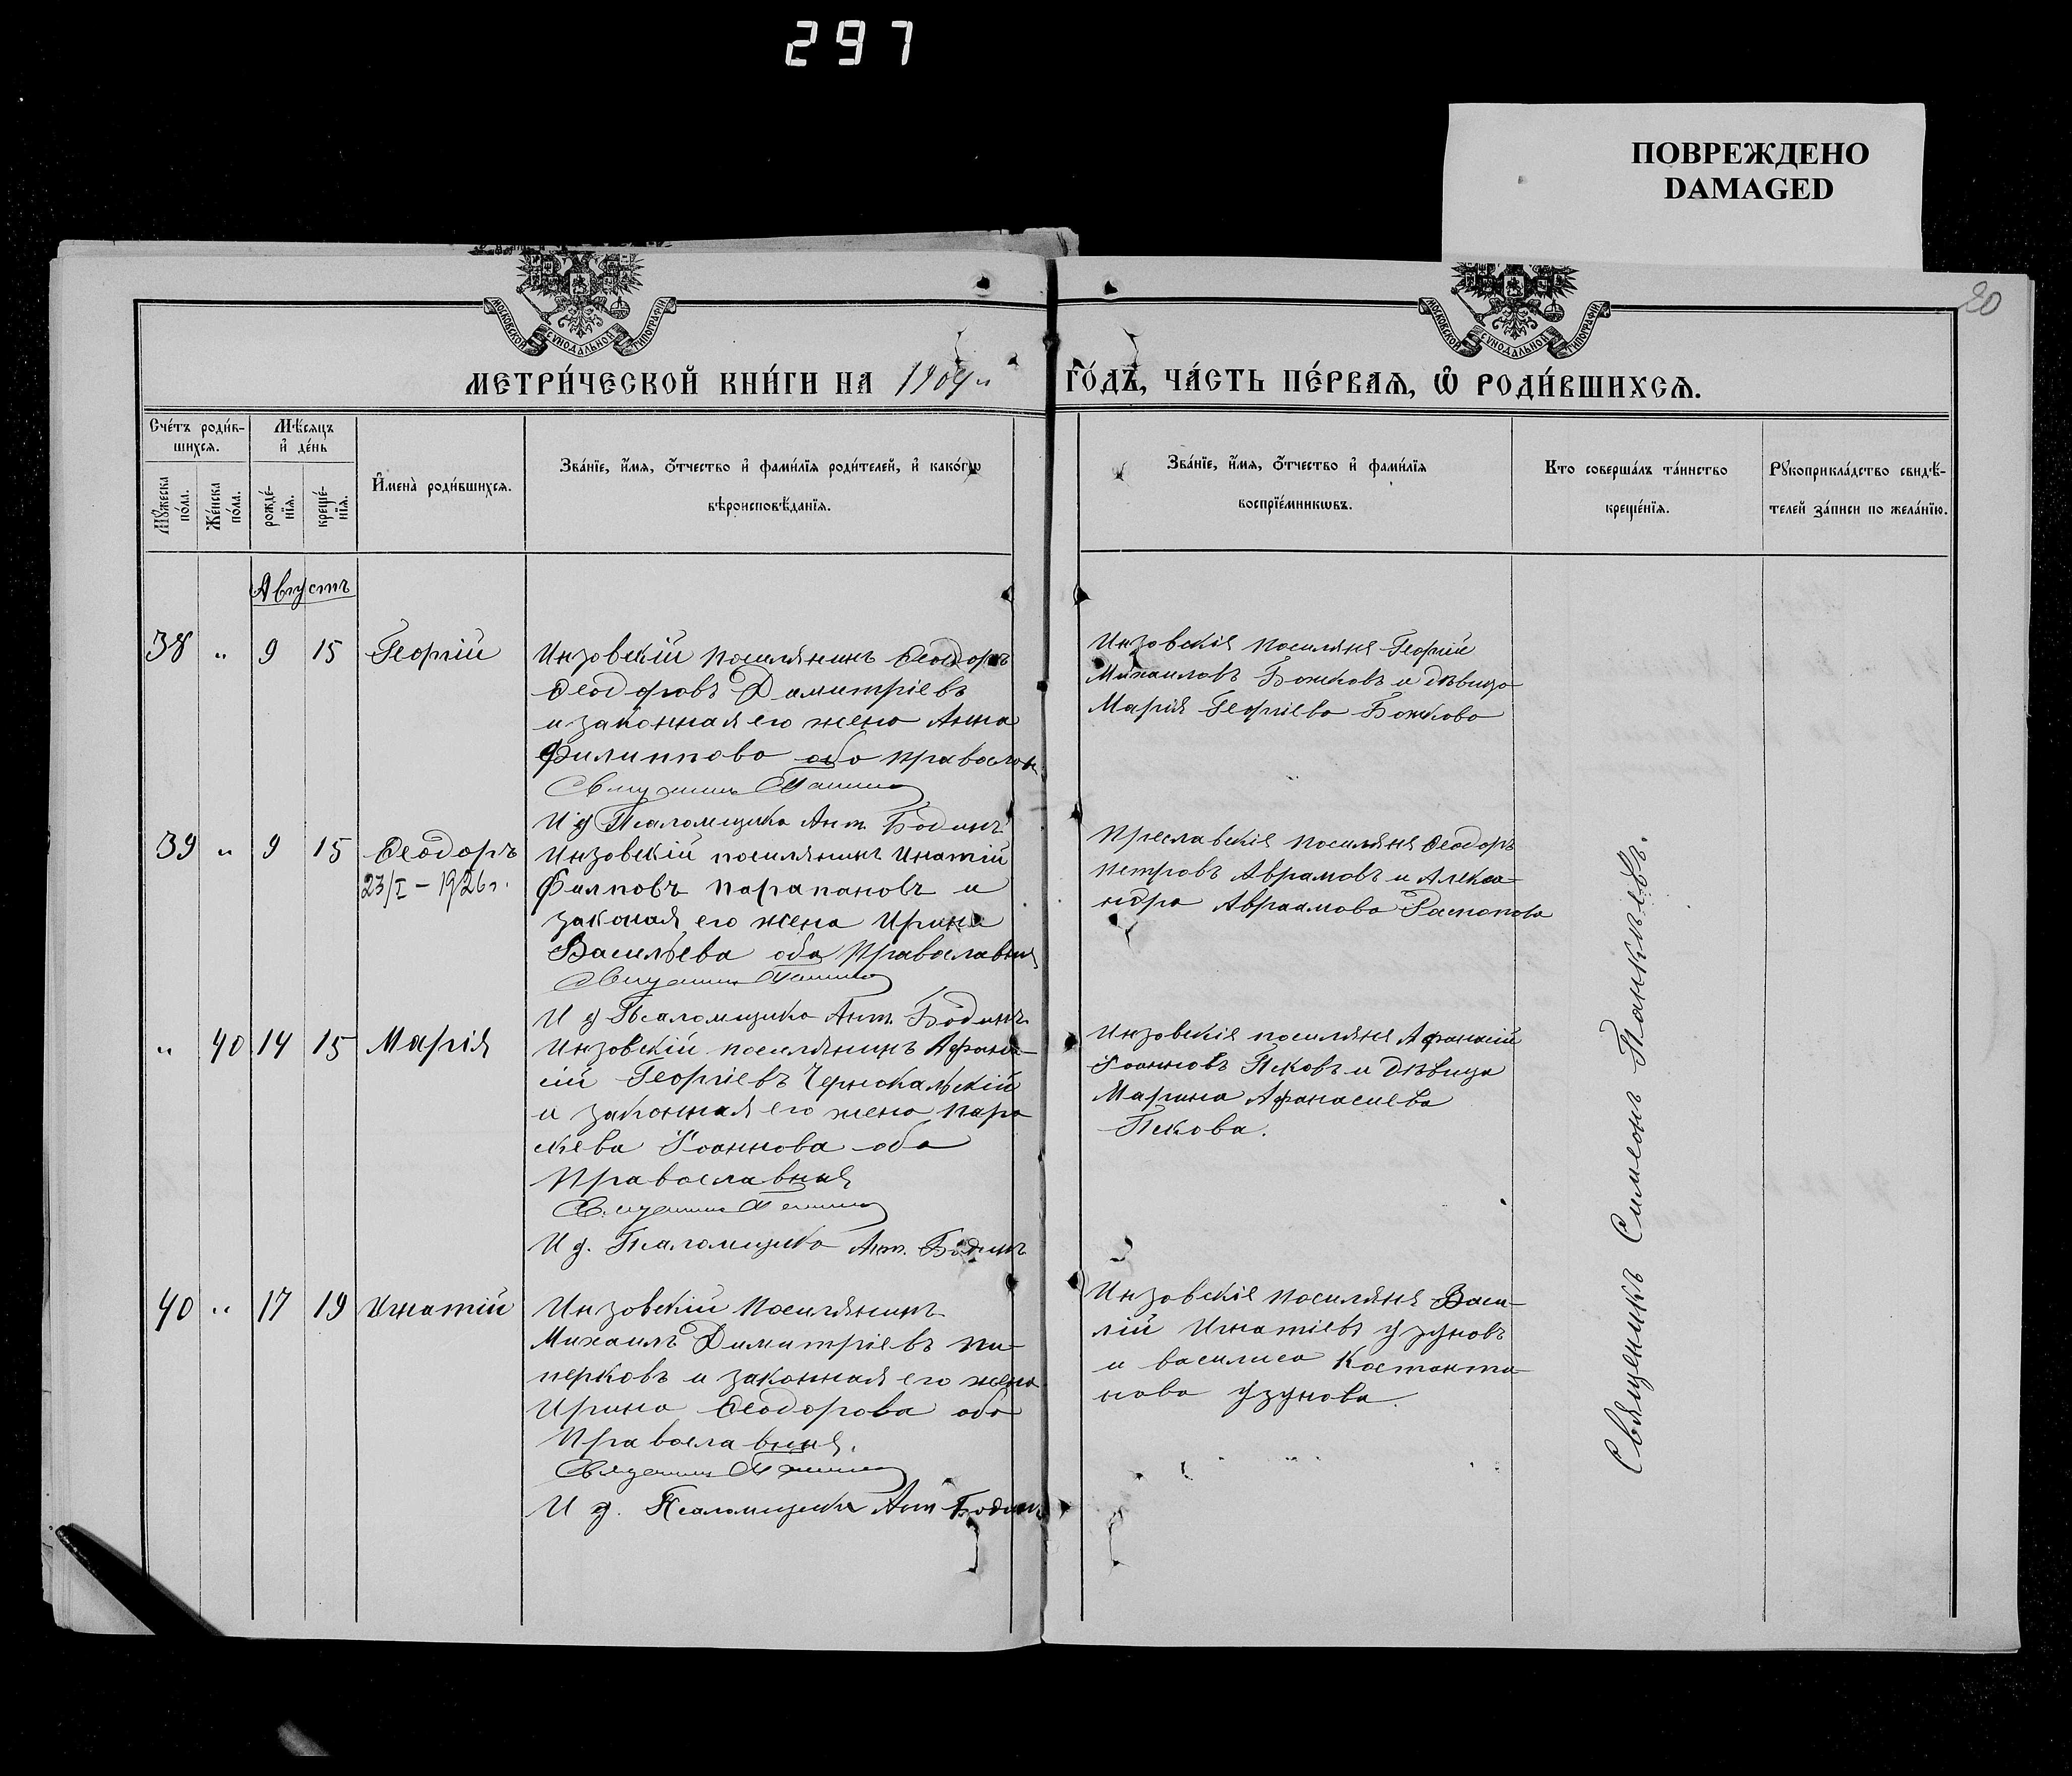 297
ПОВРЕЖДЕНО
DAMAGED
20
МОСКОВСКОЙ СУНОДАЛЬНОЙ ТИПОГРАФІИ
МОСКОВСКОЙ СУНОДАЛЬНОЙ ТИПОГРАФІИ
МЕТРИ́ЧЕСКОЙ КНИ́ГИ НА 1904 й ГО́ДЪ, ЧА́СТЬ ПЕ́РВАѦ, Ѽ РОДИ́ВШИХСѦ.
Сче́тъ роди́в-
шихсѧ.
Мѣ́сѧцъ
и҆ де́нь
Мꙋ́жеска по́ла.
Же́нска по́ла.
рожде́-
нїѧ.
креще́-
нїѧ.
И҆мена̀ роди́вшихсѧ.
Зва́нїе, и҆́мѧ, ѻ҆́тчество и҆ фами́лїѧ роди́телей, и҆ како́гѡ
вѣроисповѣ́данїѧ.
Зва́нїе, и҆́мѧ, ѻ҆́тчество и҆ фами́лїѧ
воспрїе́мникѡвъ.
Кто соверша́лъ та́инство
креще́нїѧ.
Рꙋкоприкла́дство свидѣ́-
телей за́писи по жела́нїю.
Августъ
38 " 9 15 Георгій
Инзовскій поселянинъ Ѳеодоръ
Ѳеодоровъ Димитріевъ
и законная его жена Анна
Филиппова оба православн
И д Псаломщика Ант. Бодинъ
Инзовскія поселяне Георгій
Михаиловъ Божковъ и дѣвица
Марія Георгіева Божкова
39 " 9 15 Ѳеодоръ
23/I – 1926 г.
Инзовскій поселянинъ Инатій
Филповъ Парапановъ и
законая его жена Ирина
Васильева оба Православныя
И д Псаломщика Ант. Бодинъ
Преславскія поселяне Ѳеодоръ
Петровъ Аврамовъ и Алекса-
ндра Авраамова Распопова
" 40 14 15 Марія
Инзовскій поселянинъ Афана-
сій Георгіевъ Чернокальскій
и законная его жена Пара
скева Іоаннова оба
Православныя
И д. Псаломщика Ант. Бодинъ
Инзовскія поселяне Афанасій
Іоанновъ Пековъ и дѣвица
Марина Афанасиева
Пекова.
40 " 17 19 Игнатій
Инзовскій поселянинъ
Михаилъ Димитріевъ Пи-
перковъ и законная его жена
Ирина Ѳеодорова оба
Православныя.
И д. Псаломщика Ант Бодинъ
Инзовскія поселяне Васи-
лій Игнатіевъ Узуновъ
и Василиса Костанти-
нова Узунова.
Священникъ Симеонъ Панкѣевъ.